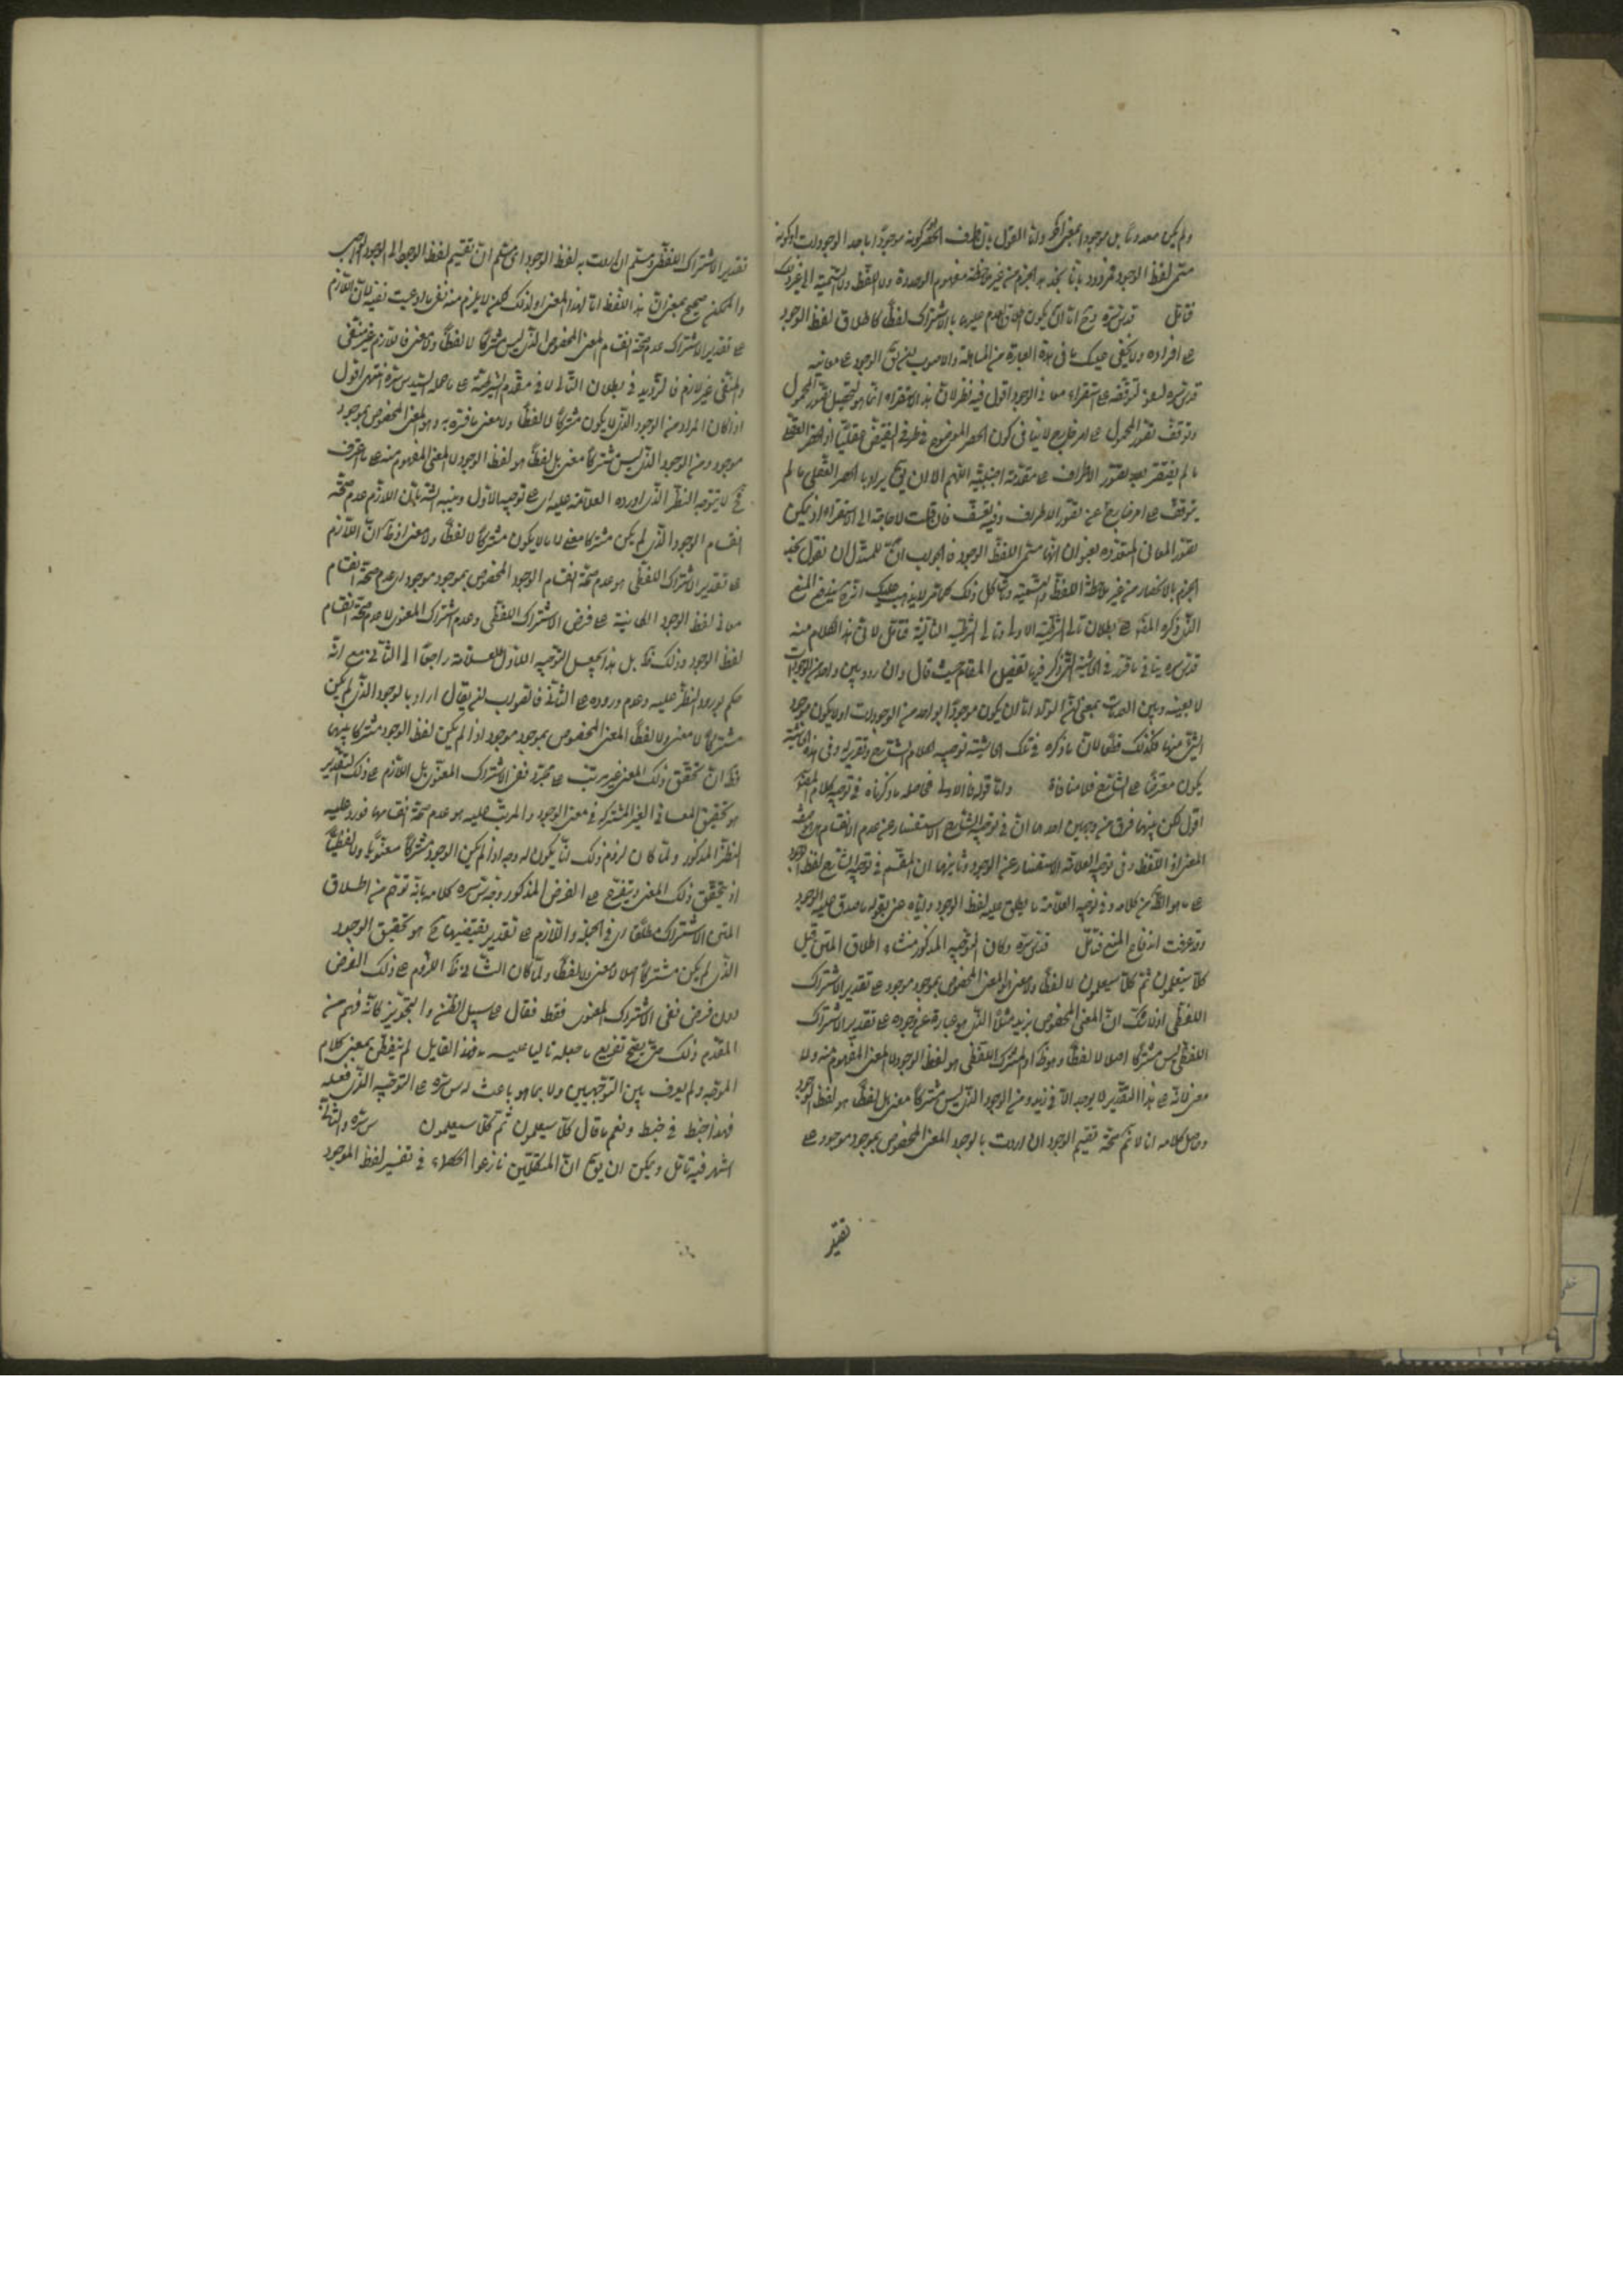 ولم يكن معدوما بل موجودا بمعنى آخر واما القول بان طرف الحصر كونه موجودا باحد الوجودات او كونه
مسمى لفظ الوجود فمردود بانا نجد هذا الجزم من غير ملاحظة مفهوم الوحدة ولا اللفظ ولا التسمية الى غير ذلك
فتأمل قدس سره وح اما ان يكون اطلاق العدم عليها بالاشتراك لفظا كاطلاق لفظ الوجود
على افراده ولا يخفى عليك ما فى هذه العبارة من المساهلة والاصوب ان يق الوجود على معانيه
قدس سره لتوقفه على استقراء معانى الوجود اقول فيه نظر لان هذا الاستقراء انما هو لتحصيل تصور المحمول
وتوقف تصور المحمول على امر خارج لا ينافى كون الحصر
ما لم يفتقر بعد تصور الاطراف على مقدمة اجنبية اللهم الا ان يق يراد بالحصر العقلى ما لم
يتوقف على امر خارج عن تصور الاطراف وفيه تعسف فان قلت لا حاجة الى الاستقراء اذ يمكن
تصور المعانى المتعددة بعنوان انها مسمى اللفظ الوجود فالجواب انه للمستدل ان نقول نجد
الجزم بالانحصار من غير ملاحظة اللفظ والتسمية وشاكل ذلك كما مر لا يذهب عليك
الذى ذكره المص على بطلان تالى الشرطية الاولى وتالى الشرطية الثانية فتأمل لان هذا الكلام منه
قدس سره ينافى ما قرر فى الحاشية التى ذكر فيها تفصيل المقام حيث قال وان ردد بين واحد من الوجودات
لا بعينه وبين العدمات بمعنى ان السواد اما ان يكون موجودا بواحد من الوجودات او لا يكون موجودا
بشئ منها فكذلك قطعا لان ما ذكره فى تلك الحاشية توجيه لكلام الشارح وتقريره وفى هذه الحاشية
يكون معترضا على الشارح فلا منافاة واما قوله فالاولى فحاصله ما ذكرناه فى توجيه كلام المص
اقول لكن بينهما فرق من وجهين احدهما ان فى توجيه الشارح الاستفسار عن عدم الانقسام
المعنى او اللفظ وفى توجيه العلامة الاستفسار عن الوجود وثانيهما ان المقسم فى توجيه الشارح لفظ الوجود
على ما هو الظ من كلامه وفى توجيه العلامة ما يطلق عليه لفظ الوجود واياه عنى بقوله ما صدق عليه الوجود
وقد عرفت اندفاع المنع فتأمل قدس سره وكان التوجيه المذكور منشاء اطلاق المتن قيل
كلا سيعلمون ثم كلا سيعلمون لا لفظا ولا معنى المعنى المخصوص بموجود موجود على تقدير الاشتراك
اللفظى اذ لا شك ان المعنى المخصوص بزيد مثلا الذى هو عبارة عن وجوده على تقدير الاشتراك
اللفظى ليس مشتركا اصلا لا لفظا وهو ظ اذ المشترك اللفظى هو لفظ الوجود لا المعنى المفهوم منه ولا
معنى لانه على هذا التقدير لا يوجد الا فى زيد ومن الوجود الذى ليس مشتركا معنى بل لفظا هو لفظ الوجود
وحاصل كلامه انا لا نم صحة تقسيم الوجود ان اردت بالوجود المعنى المخصوص بموجود موجود على
تقدير
تقدير الاشتراك اللفظى ومسلم ان اردت به لفظ الوجود اى مسلم ان تقسيم لفظ الوجود الى الوجود الواجب
والممكن صحيح بمعنى ان هذا اللفظ اما لهذا المعنى او لذلك لكن لا يلزم منه نفى ما ادعيت نفيه لان اللازم
على تقدير الاشتراك عدم صحة انقسام المعنى المخصوص الذى ليس مشتركا لا لفظا ولا معنى فاللازم غير منتفى
والمنتفى غير لازم فالترديد فى بطلان التالى لا فى مقدم الشرطية على ما حمله السيد س سره انتهى اقول
اذا كان المراد من الوجود الذى لا يكون مشتركا لا لفظا ولا معنى ما فسره به وهو المعنى المخصوص بموجود
موجود ومن الوجود الذى ليس مشتركا معنى بل لفظا هو لفظ الوجود لا المعنى المفهوم منه على ما اعترف
فح لا يتوجه النظر الذى اورده العلامة عليه اى على توجيه الاول وبينه الش بان اللازم عدم صحة
انقسام الوجود الذى لم يكن مشتركا معنى لا ما لا يكون مشتركا لا لفظا ولا معنى اذ ظ ان اللازم
على تقدير الاشتراك اللفظى هو عدم صحة انقسام الوجود المخصوص بموجود موجود اى عدم صحة انقسام
معانى لفظ الوجود المتباينة على فرض الاشتراك اللفظى وعدم اشتراك المعنوى لا عدم صحة انقسام
لفظ الوجود وذلك ظ بل هذا يجعل التوجيه الاول للعلامة راجعا الى الثانى مع انه
حكم بورود النظر عليه وعدم وروده على الثانى فالصواب ان يقال اراد بالوجود الذى لم يكن
مشتركا لا معنى ولا لفظا المعنى المخصوص بموجود موجود اذا لم يكن لفظ الوجود مشتركا بينهما
فظ ان تحقق ذلك المعنى غير مرتب على مجرد نفى الاشتراك المعنوى بل اللازم على ذلك التقدير
هو تحقق المعانى الغير المشتركة فى معنى الوجود والمرتب عليه هو عدم صحة انقسامها فورد عليه
النظر المذكور ولما كان لزوم ذلك انما يكون له وجه اذا لم يكن الوجود مشتركا معنويا ولا لفظيا
اذ يتحقق ذلك المعنى ويتفرع على الفرض المذكور وجه س سره كلامه بانه توهم من اطلاق
المتن الاشتراك مطلقا اى فى الجملة واللازم على تقدير نقيضيهما ح هو تحقق الوجود
الذى لم يكن مشتركا اصلا لا معنى ولا لفظا ولما كان الشارح اللزوم على ذلك الفرض
دون فرض نفى الاشتراك المعنوى فقط فقال على سبيل الظن والتجويز كانه فهم من
المقدم ذلك حتى يصح تفريع ما جعله تاليا عليه فهذا القايل لم يتفطن بمعنى كلام
الموجه ولم يعرف بين التوجيهين ولا بما هو باعث له س سره على التوجيه الذى فعله
فهذا خبط فى خبط ونعم ما قال كلا سيعلمون ثم كلا سيعلمون س سره والثانى
اشهر فيه تأمل ويمكن ان يق ان المتكلمين نازعوا الحكماء فى تفسير لفظ الموجود